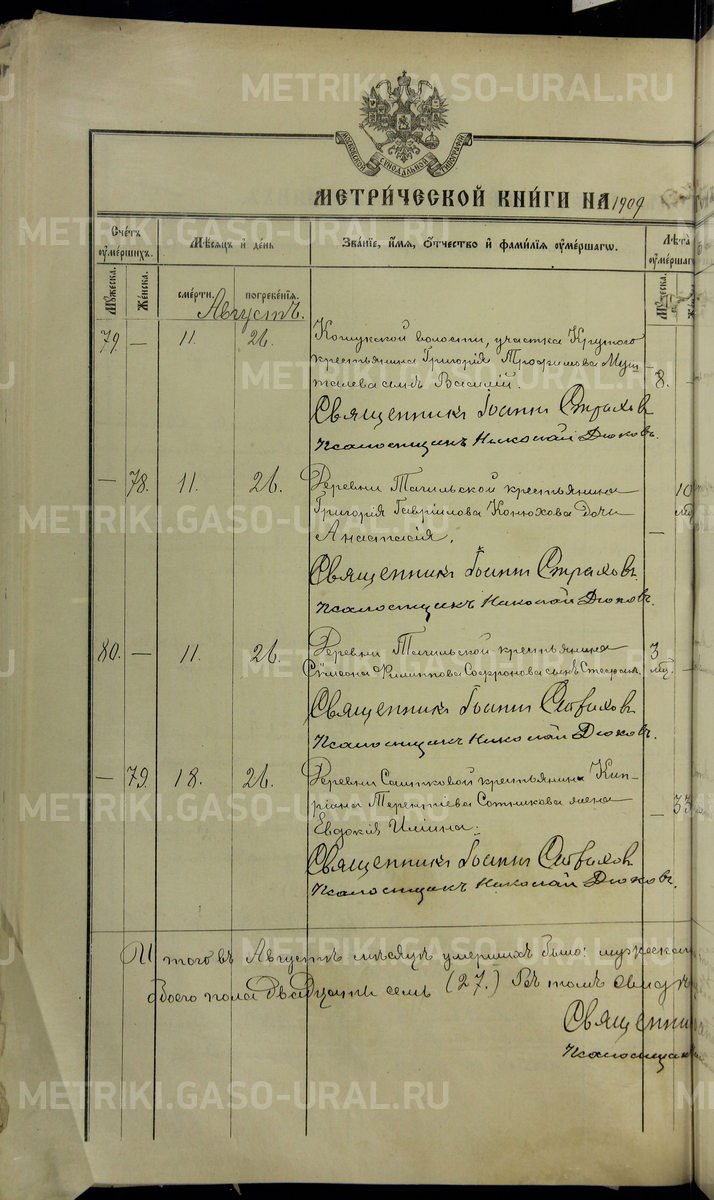 МОСКОВСКОЙ СУНОДАЛЬНОЙ ТИПОГРАФІИ
МЕТРИ́ЧЕСКОЙ КНИ́ГИ НА 1909
Сче́тъ оуме́ршихъ.
Мѣ́сяцъ и де́нь
Зва́нїе, и́мя, о́тчество и фами́лїя оуме́ршагѡ.
Лѣ́та оуме́ршаг
Му́жеска.
Же́нска.
сме́рти.
погребе́нїя.
Му́жеска.
Августъ.
79. — 11. 26. Кошукской волости, участка Крутого
крестьянина Григорія Трофимова
сынъ Василій. 8. —
Священникъ Іоаннъ Страховъ
Псаломщикъ Николай Дюковъ.
— 78. 11. 26. Деревни Тагильской крестьянина 10
Григорія Гавріилова Конюхова дочь мц
Анастасія. —
Священникъ Іоаннъ Страховъ
Псаломщикъ Николай Дюковъ.
80. — 11. 26. Деревни Тагильской крестьянина 3
Сѵмеона Филиппова Софронова сынъ Стефанъ. мц. —
Священникъ Іоаннъ Страховъ
Псаломщикъ Николай Дюковъ.
— 79. 18. 26. Деревни крестьянина Кип-
ріана Терентіева Сотникова жена — 33
Евдокія Ильина.
Священникъ Іоаннъ Страховъ
Псаломщикъ Николай Дюковъ.
Итого въ Августѣ мѣсяцѣ умершихъ было: мужеском
обоего пола двадцать семь (27.) Въ томъ свидѣ
Священни
Псаломщик
METRIKI.GASO-URAL.RU